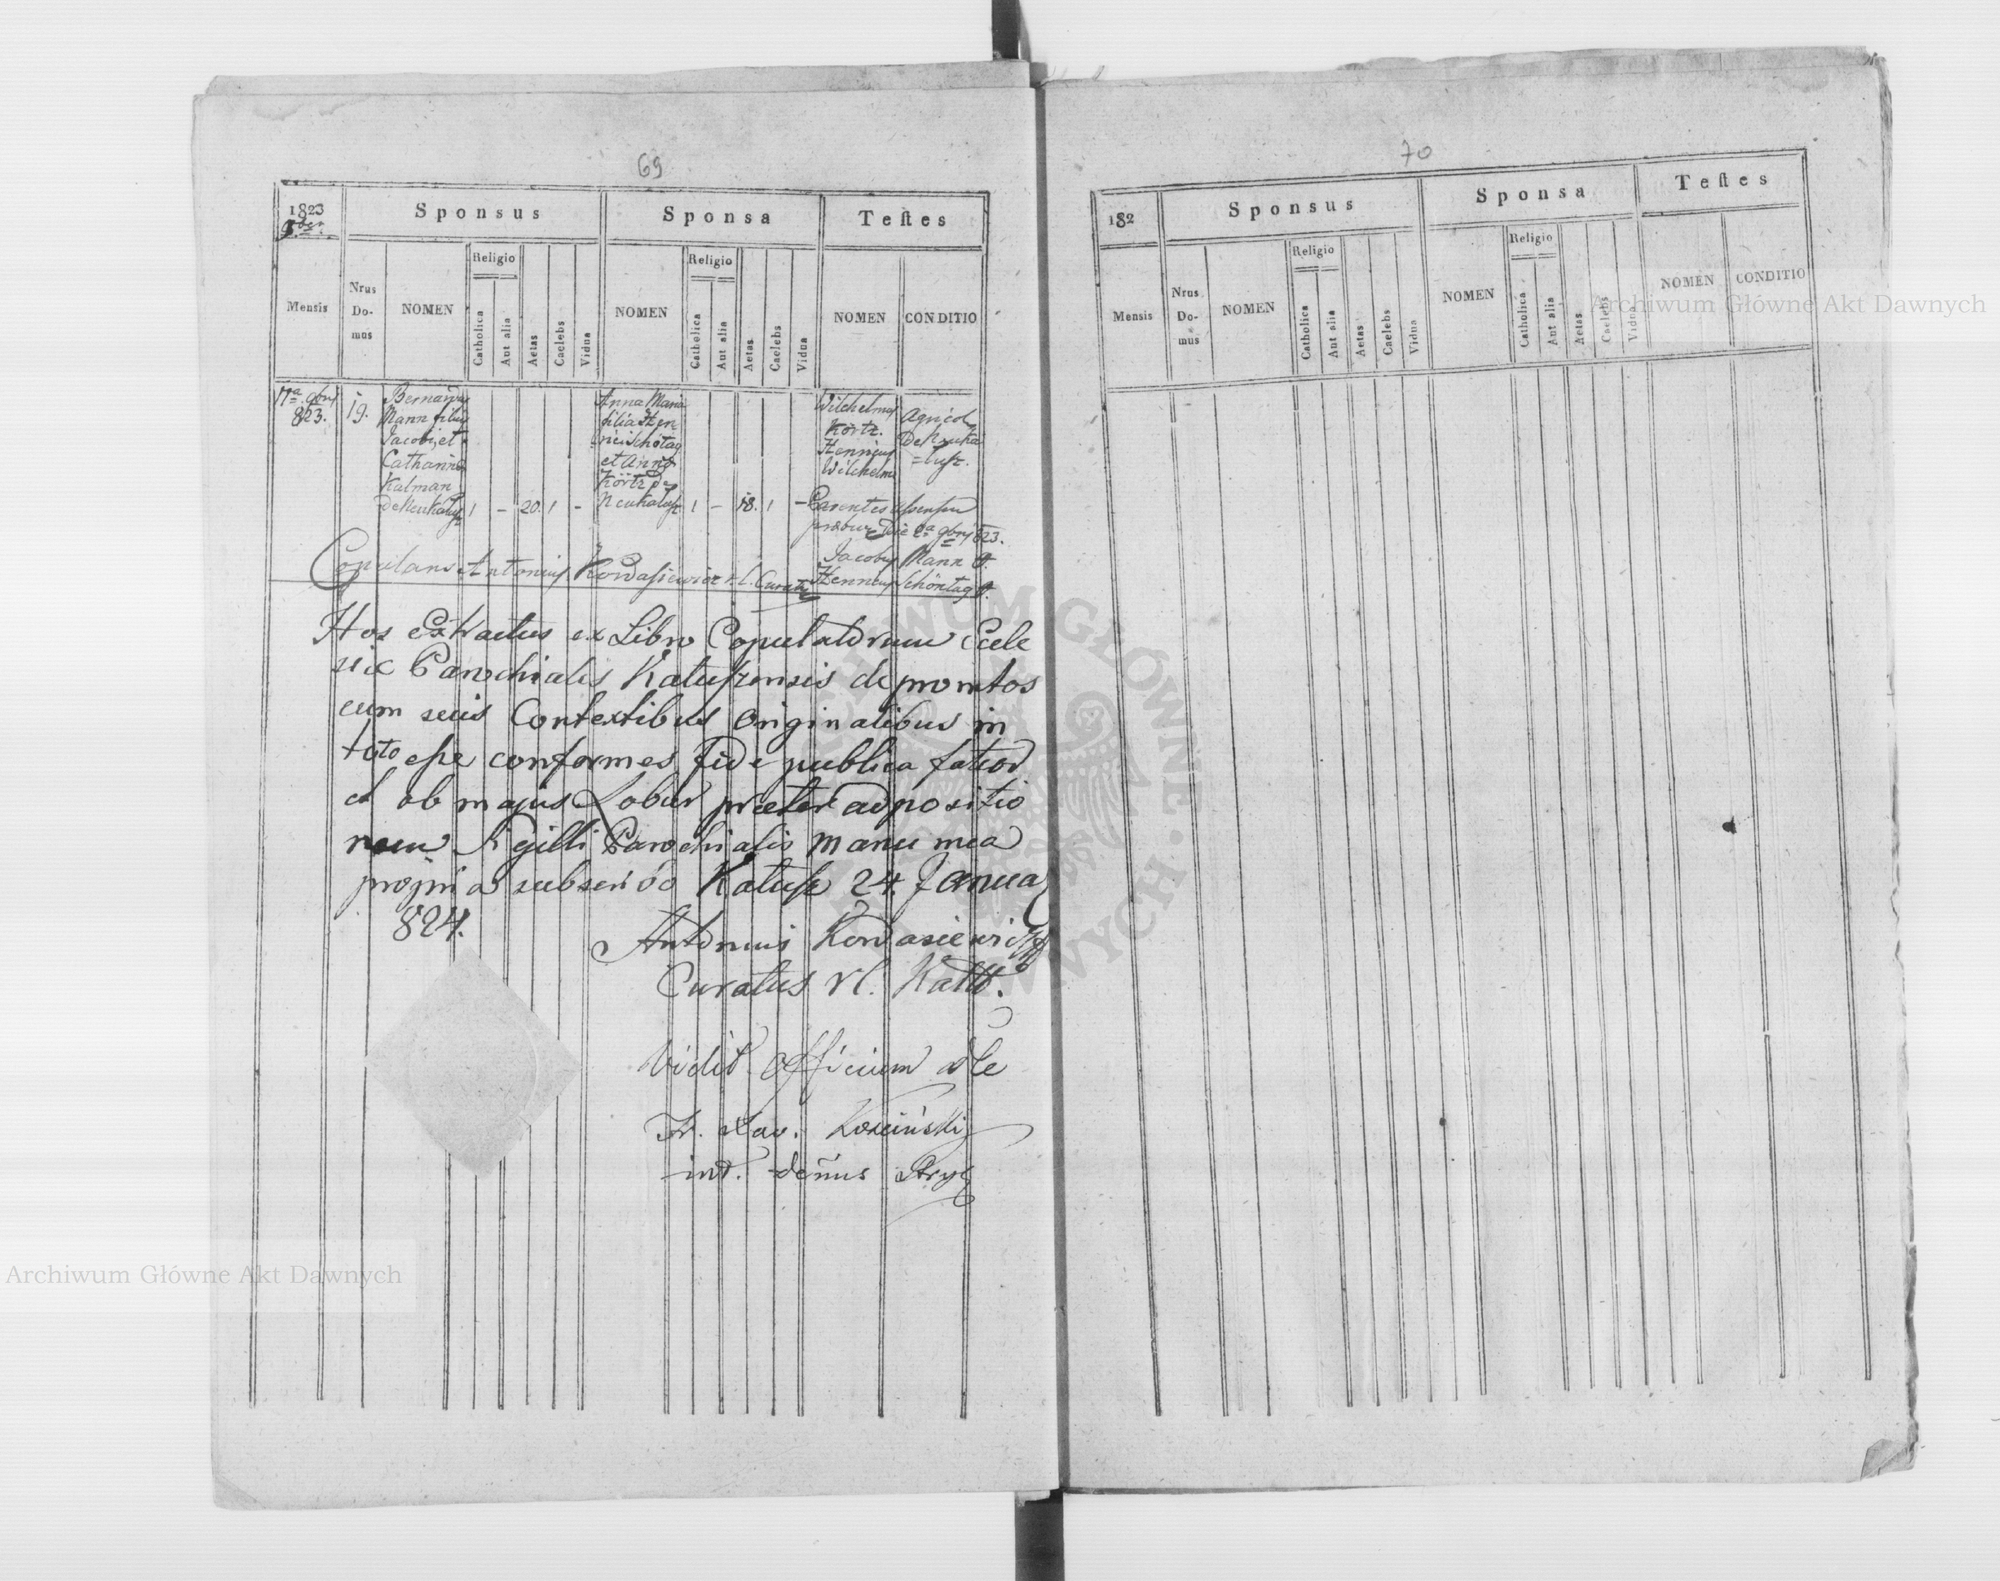 69
1823
9ber
Sponsus
Sponsa
Teſtes
Mensis
Nrus Do- mus
NOMEN
Religio
Catholica
Aut alia
Aetas
Caelebs
Vidua
NOMEN
Religio
Catholica
Aut alia
Aetas
Caelebs
Vidua
NOMEN
CONDITIO
17a 9bris
823.
19.
Bernardus
Mann filius
Jacobi et
Catharina
Kalman
de Neukalusz 1 – 20. 1 –
Anna Maria
filia Hen
rici Schötag
et Anna
Körtz de
Neukalusz 1 – 18. 1 –
Wilhelmus
Körtz.
Henricus
Wilhelm
Agricol
de Neuka
=lusz.
Parentes assensum
præbuere Die 9bris 823.
Jacobus Mann
Henricus Schöntag
Copulans Antonius Kordasiewicz r. l. Curatus
Hos extractus ex Libro Copulatorum Eccle
siæ Parochialis Kaluszensis depromtos
cum suis Contextibus originalibus in
toto esse conformes fide publica fateor
et ob majus Robur præter adpositio
nem Sigilli Parochialis manu mea
propria subscribo Kalusz 24 Januar
824.
Antonius Kordasiewicz
Curatus r. l. Kall.
Vidit Officium dle
Fr. Xav. Kosciński
int. decanus Stryj
70
182
Sponsus
Sponsa
Teſtes
Mensis
Nrus Do- mus
NOMEN
Religio
Catholica
Aut alia
Aetas
Caelebs
Vidua
NOMEN
Religio
Catholica
Aut alia
Aetas
Caelebs
Vidua
NOMEN
CONDITIO
Archiwum Główne Akt Dawnych
ARCHIWUM GŁÓWNE AKT DAWNYCH
Archiwum Główne Akt Dawnych